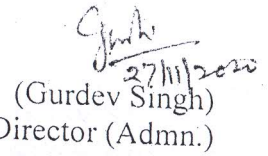 27/11/2020
(Gurdev Singh)
Director (Admn.)